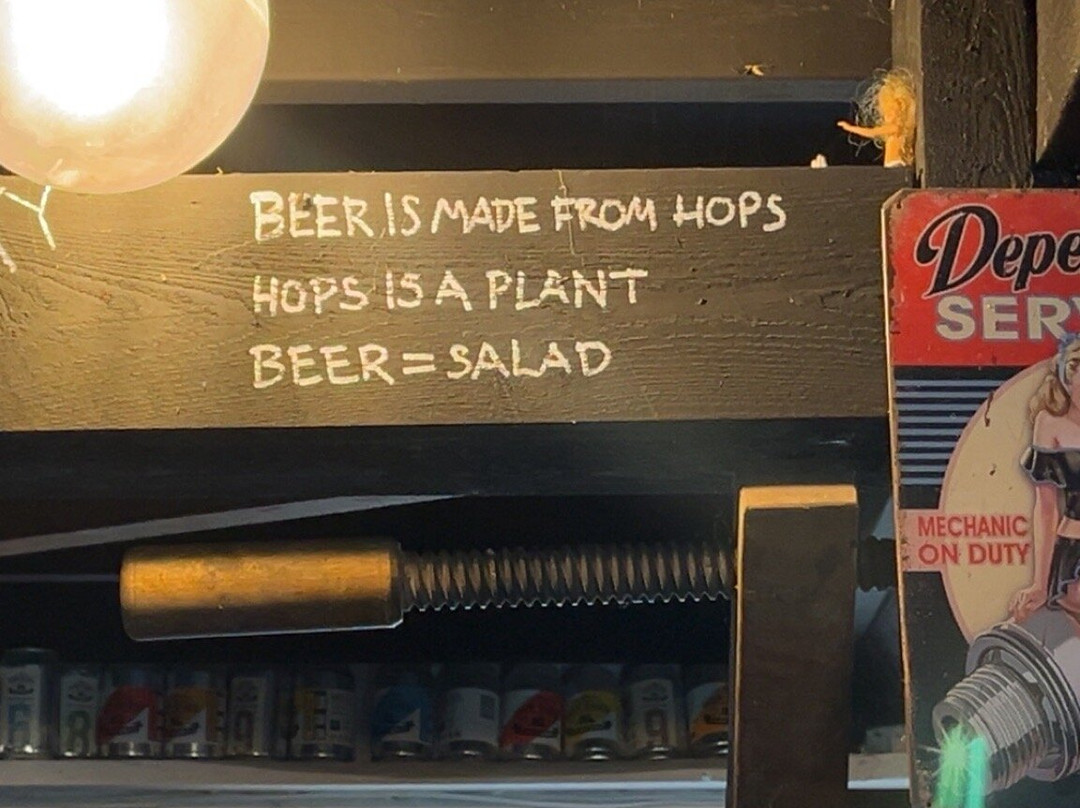 BEER IS MADE FROM HOPS
HOPS IS A PLANT
BEER = SALAD
Depe
SER
MECHANIC
ON DUTY